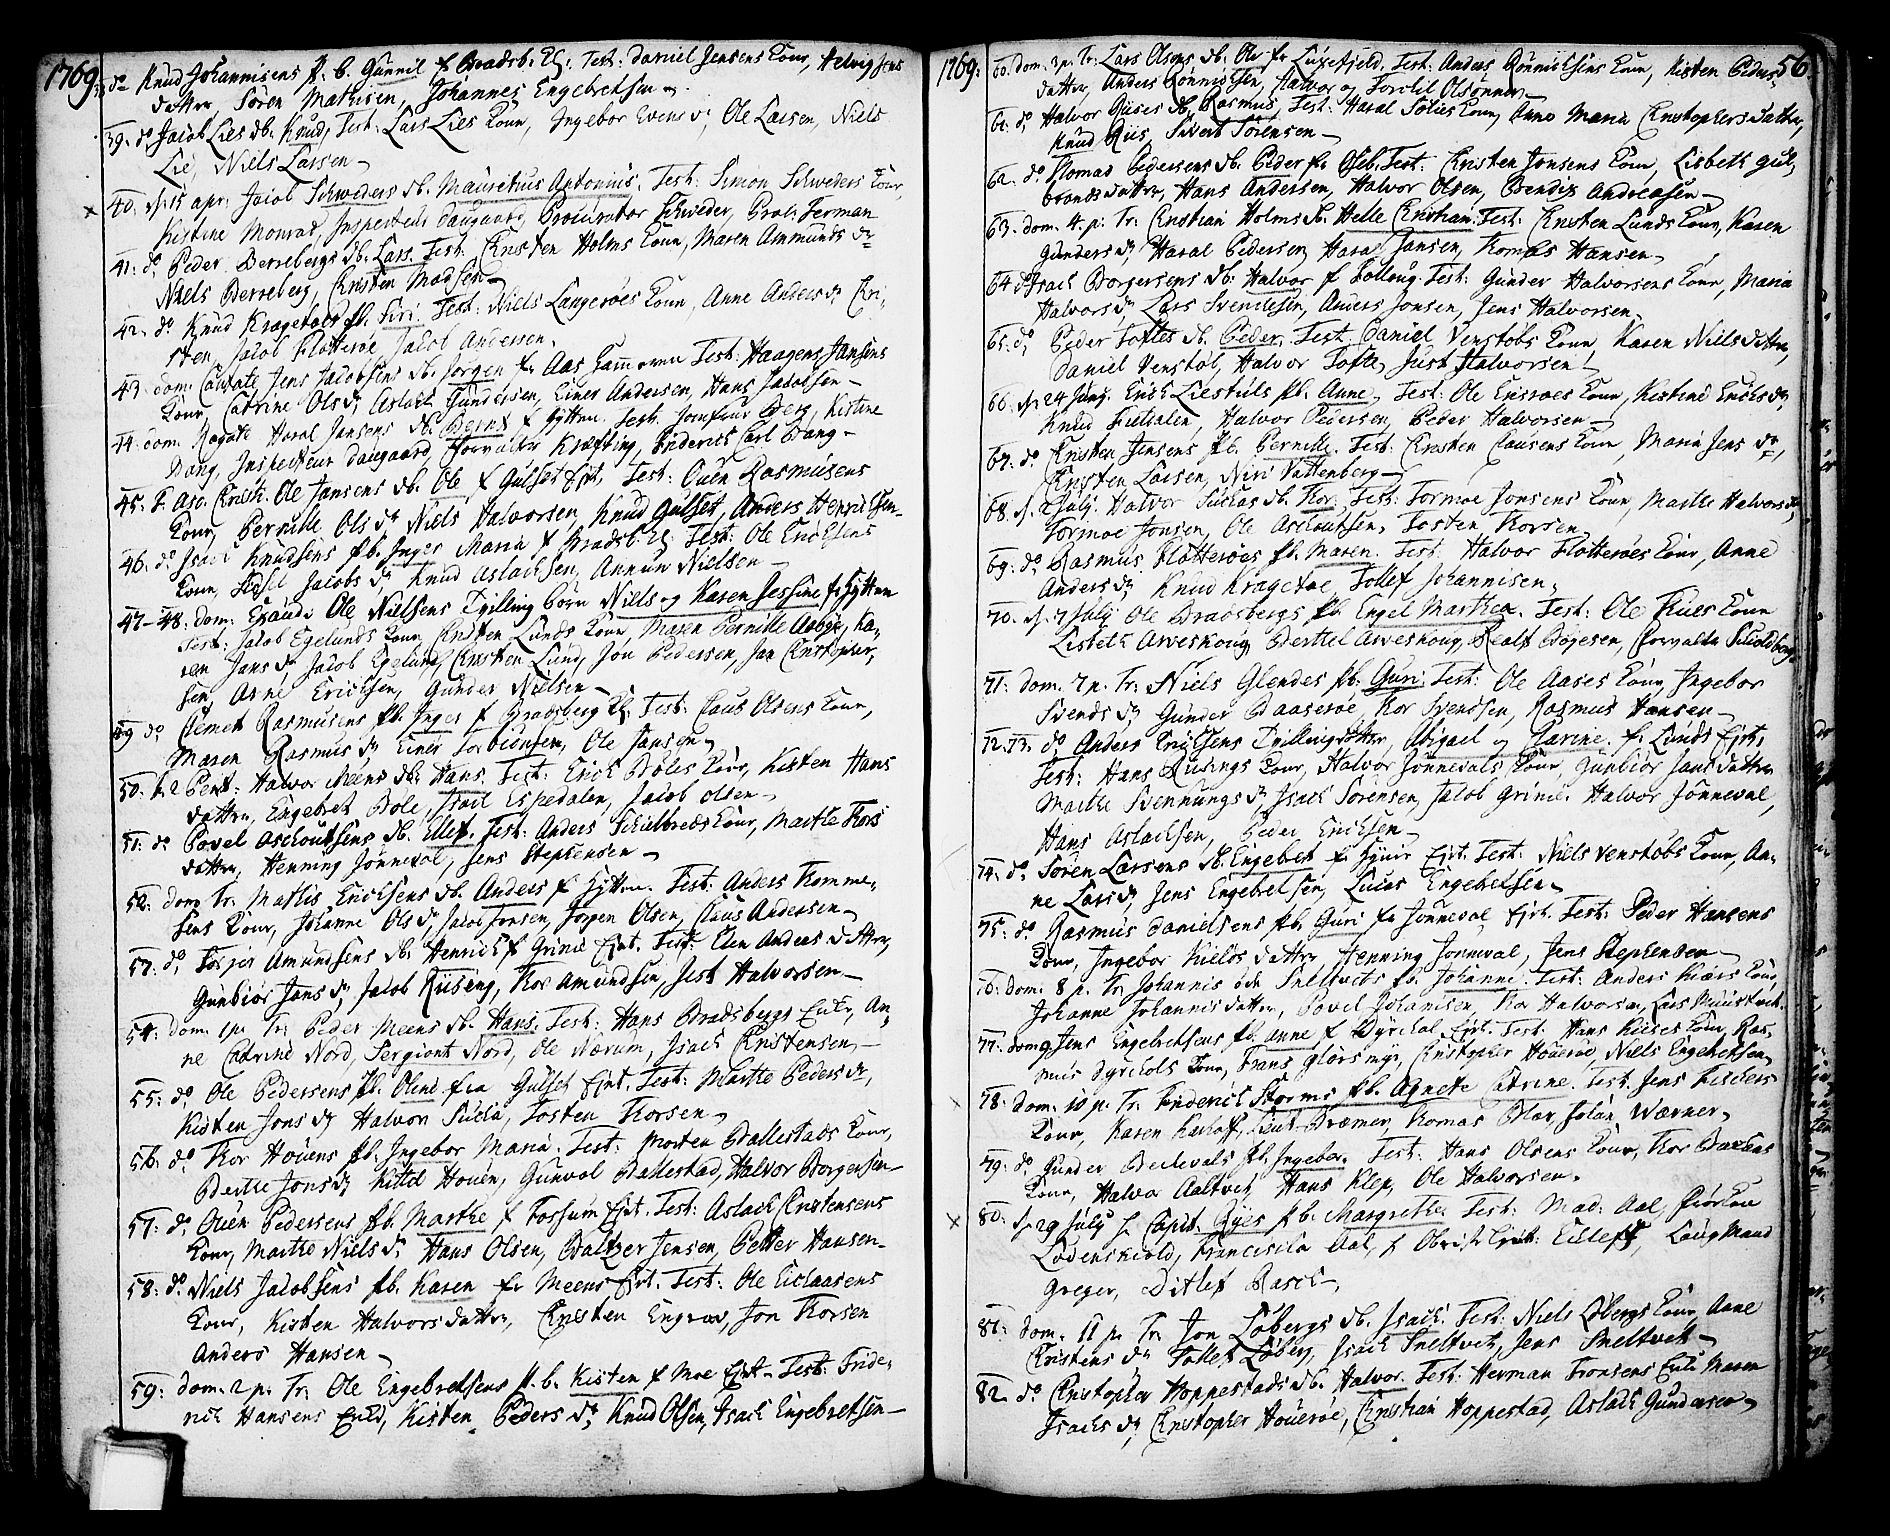 1769
do Knud Johannisens p. b. Gunnil f Bradsb. Ej: Test: Daniel Jensens Konr, Helvig Jens
datter, Sören Mathisen, Johannes Engebretsen
39. do Jacob Lies db. Knud, Test: Lars Lies Konr, Ingebor Evens dr, Ole Larsen, Niels
Lie, Niels Larsen
40. d. 15 apr: Jacob Schweders db. Mauretius Antonius. Test: Simon Schweders Konr,
Kistine Monrad, Inspecteur Daugaard, Procurator Schweder, Prol: Ferman
41: do Peder Berrebergs db. Lars. Test: Christen Holms Konr, Maren Ammunds dr
Niels Berreberg, Christen Madsen
42: do Knud Kragetoes pb. Siri. Test: Niels Langeröes Konr, Anne Anders dr Chri-
sten, Jacob Flötteröe, Jacob Andersen.
43: dom: Cantate, Jens Jacobsens db. Jörgen fr Aas hammeren Test: Haagen Jansens
Konr, Catrine Ols dr, Aslach Gundersen, Einer Andersen, Hans Jacobsen
44: dom: Rogate Haral Jansens db. Bernt f Hytten. Test: Jomfrue Berg, Kistine
Bang, Inspecteur Daugaard, Forvalter Kræfting, Friderich Carl Bang
45. F. Asc. Christi. Ole Jansens db. Ole f Gulset Ejt, Test: Ouen Rasmusens
Konr, Pernille Ols dr Niels Halvorsen, Knud Gulset, Anders Henrichsen
46. do Isach Knudsens pb. Inger Maria f Bradsb. Ej Test: Ole Erichsens
Konr, Sidsel Jacobs dr, Knud Aslachsen, Annun Nielsen
47-48: dom: Exaudi Ole Nielsens Tvilling börn Niels og Karen Jessine fr Hytten
Test: Jacob Egelunds Konr, Christen Lunds Konr, Maren Pernille Aabye, Ka-
ren Jans dr, Jacob Egelund, Christen Lund, Jon Pedersen, Jan Christopher-
sen, Arne Erichsen, Gunder Nielsen
49 do Clemet Rasmusens pb. Inger f Bradsberg Ej. Test: Claus Olsens Konr,
Maren Rasmus dr, Einer Torbiönsen, Ole Jansen
50. F. 2 Pent: Halvor Meens db. Hans. Test: Erich Böles Konr, Kisten Hans
datter, Engebret Bole, Isach Espedalen, Jacob Olsen
51: do Povel Aschoutsens db. Ellef. Test: Anders Schilbreds Konr, Marthe Thors
datter, Henning Jönneval, Jens Stephensen
52: dom Tr: Mathis Erichsens db. Anders f Hytten. Test: Anders Thomme-
sens Konr, Johanne Ols dr, Jacob Jonsen, Jörgen Olsen, Claus Andersen
53: do Torjer Amundsens db. Henrich f Grinie Ejt. Test: Elen Anders datter,
Gunbiör Jons dr, Jacob Riising, Thor Amundsen, Jest Halvorsen
54: dom. 1 p. Tr: Peder Meens db. Hans. Test: Hans Bradsbergs Enke, An-
ne Catrine Nord, Sergiant Nord, Ole Nærum, Isach Christensen
55: do Ole Pedersens pb. Olene fra Gulset Ejt. Test: Marthe Peders dr,
Kisten Jons dr Halvor Sucla, Tosten Thorsen
56: do Thor Houens pb. Ingebor Maria. Test: Morten Ballestads Konr,
Berthe Jons dr Kittel Houen, Gunvol Ballestad, Halvor Borgersen
57: do Ouen Pedersens pb. Marthe f Fossum Ejt. Test: Aslach Christensens
Konr, Marthe Niels dr Hans Olsen, Baltzer Jensen, Petter Hansen
58: do Niels Jacobsens pb. Karen fr Meens Ejt. Test: Ole Eichaasens
Konr, Kisten Halvors datter, Christen Engrav, Jon Thorsen
Anders Hansen
59: dom. 2 p. Tr: Ole Engebretsens p.b. Kisten f Moe Ejt. Test: Fride-
rich Hansens Enke, Kisten Peders dr, Knud Olsen, Isach Engebretsen
1769. 56.
60. dom. 3 p. Tr: Lars Olsens db. Ole fr Luxefjeld. Test: Anders Rönnichsens Konr, Kisten Peders
datter, Anders Rönnichsen, Halvor og Torchil Olsönner
61: do Halvor Riises db. Rasmus, Test: Haral Folies Konr, Anne Maria Christophers datter,
Knud Riis, Sivert Sörensen
62: do Thomas Pedersens db. Peder fr Ges. Test: Christen Jonsens Konr, Lisbeth Gul-
brands datter, Hans Andersen, Halvor Olsen, Bendix Andreasen
63. dom. 4. p: Tr: Christian Holms db. Helle Christian. Test: Christen Lunds Konr, Karen
Gunders dr, Haral Pedersen, Haral Jansen, Thomas Hansen
64 do Isach Borgersens db. Halvor f Follaug. Test: Gunder Halvorsens Konr, Maria
Halvors dr Lars Svenchesen, Anders Jonsen, Jens Halvorsen
65: do Peder Toftes db. Peder, Test: Daniel Venstöbs Konr, Karen Niels datter,
Daniel Venstöb, Halvor Tofte, Just Halvorsen
66. d. 24 Junj. Erich Liestuls pb. Anne, Test: Ole Ensroes Konr, Kistine Erichs dr,
Knud Fiutalen, Halvor Pedersen, Peder Halvorsen
67. do Christen Jensens pb. Pernille. Test: Christen Clausens Konr, Maria Jens dr,
Christen Larsen, Niri Vattenberg
68. d. 2 Julj. Halvor Suclas db. Thor, Test: Tormoe Jonsens Konr, Marthe Halvors dr,
Tormoe Jonsen, Ole Aschoutsen, Tosten Thorsen
69: do Rasmus Flötteröes pb. Maren. Test: Halvor Flötteröes Konr, Anne
Anders dr Knud Kragetoe, Tollef Johannisen
70. d. 7 Julj Ole Bradsbergs pb. Engel Marthea. Test: Ole Riies Konr
Lisbeth Arveskoug, Berthel Arveskoug, Realf Böyesen, Forvalter Schioldberg
71: dom. 7 p. Tr: Niels Glendes pb. Guri. Test: Ole Aases Konr, Ingebor
Svends dr Gunder Baaseröe, Thor Svendsen, Rasmus Hansen
72.73: do Anders Trulsens Tvillingdøtter, Abigael og Karine fr Lunds Ejt.
Test: Hans Riisings Konr, Halvor Jönnevals Konr, Gunbiör Jans datter
Marthe Svennungs dr Isach Sörensen, Jacob Grinie, Halvor Jönneval,
Hans Aslachsen, Peder Erichsen
74: do Sören Larsens db. Engebret fr Hynie Ejt. Test: Niels Venstöbs Konr, An-
ne Lars dr Jens Engebretsen, Lucas Engebretsen
75: do Rasmus Danielsens pb. Guri fr Jönneval Ejt. Test: Peder Hansens
Konr, Ingebor Kiels datter, Henning Jönneval, Jens Stephensen
76: dom: 8 p. Tr: Johannis öde Sneltveds pb. Johanne. Test: Anders Kiærs Konr,
Johanne Johannis datter, Povel Johanisen, Thor Halvorsen, Lars Miustveth.
77: dom 9 Jens Engebretsens pb. Anne f Dyrekol Ejt. Test: Hans Kiises Konr, Ras-
mus Dyrekols Konr, Frans Glörsmyr, Christopher Houeröe, Niels Engebretsen
78: dom. 10 p. Tr: Friderich Storms pb. Agnete Catrine. Test: Jens Fischers
Konr, Karen Karhoff, Lieut. Bræmer, Thomas Blar, Johan Værner
79: do Gunder Bechevals pb. Ingebor. Test: Hans Olsens Konr, Thor Barthens
Konr, Halvor Aaltvet, Hans Klep, Ole Halvorsen
80: d. 29 Julj Hr Capit. Ryes pb. Margrethe. Test: Mad: Aal, Fröcken
Lodenskiold, Francisca Aal, Oberst Lieut: Eilleff, Laugmand
Greger, Ditlef Rasch
81: dom. 11 p. Tr: Jon Löbergs db. Isach. Test: Niels Löbergs Konr, Anne
Christens dr Tollef Löberg, Isach Sneltvet, Jens Sneltvet
82. do Christopher Hoppestads db. Halvor. Test: Herman Tronsens Enke Maren
Isachs dr, Christopher Houeröe, Christian Hoppestad, Aslach Gundersen